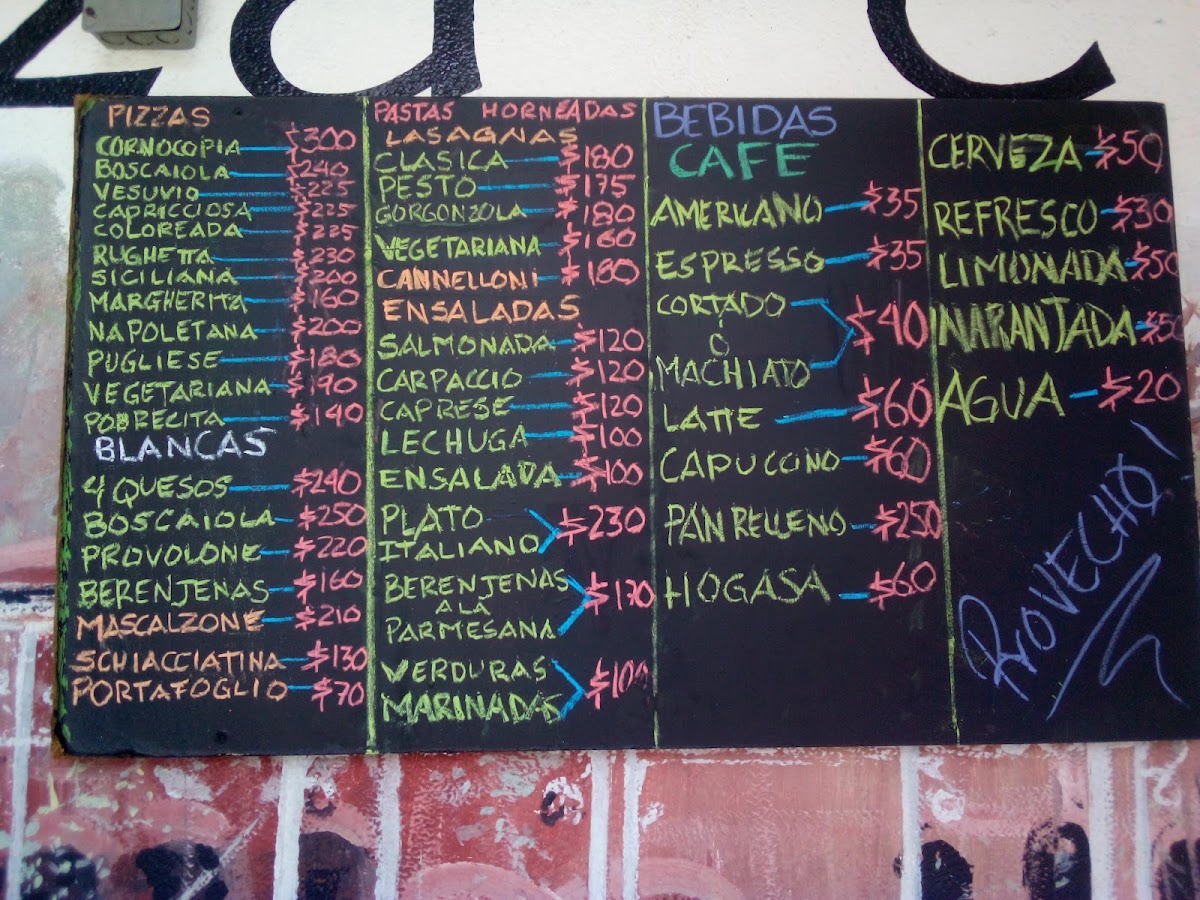 za
PIZZAS
CORNOCOPIA $300
BOSCAIOLA $240
VESUVIO $225
CAPRICCIOSA $225
COLOREADA $225
RUGHETTA $230
SICILIANA $200
MARGHERITA $160
NAPOLETANA $200
PUGLIESE $180
VEGETARIANA $190
POBRECITA $140
BLANCAS
4 QUESOS $240
BOSCAIOLA $250
PROVOLONE $220
BERENJENAS $160
MASCALZONE $210
SCHIACCIATINA $130
PORTAFOGLIO $70
PASTAS HORNEADAS
LASAGNAS
CLASICA $180
PESTO $175
GORGONZOLA $180
VEGETARIANA $160
CANNELLONI $180
ENSALADAS
SALMONADA $120
CARPACCIO $120
CAPRESE $120
LECHUGA $100
ENSALADA $100
PLATO
ITALIANO $230
BERENJENAS
A LA $170
PARMESANA
VERDURAS
MARINADAS $100
BEBIDAS
CAFE
AMERICANO $35
ESPRESSO $35
CORTADO
Ó $40
MACHIATO
LATTE $60
CAPUCCINO $60
PAN RELLENO $250
HOGASA $60
CERVEZA $50
REFRESCO $30
LIMONADA $50
NARANJADA $50
AGUA $20
PROVECHO!